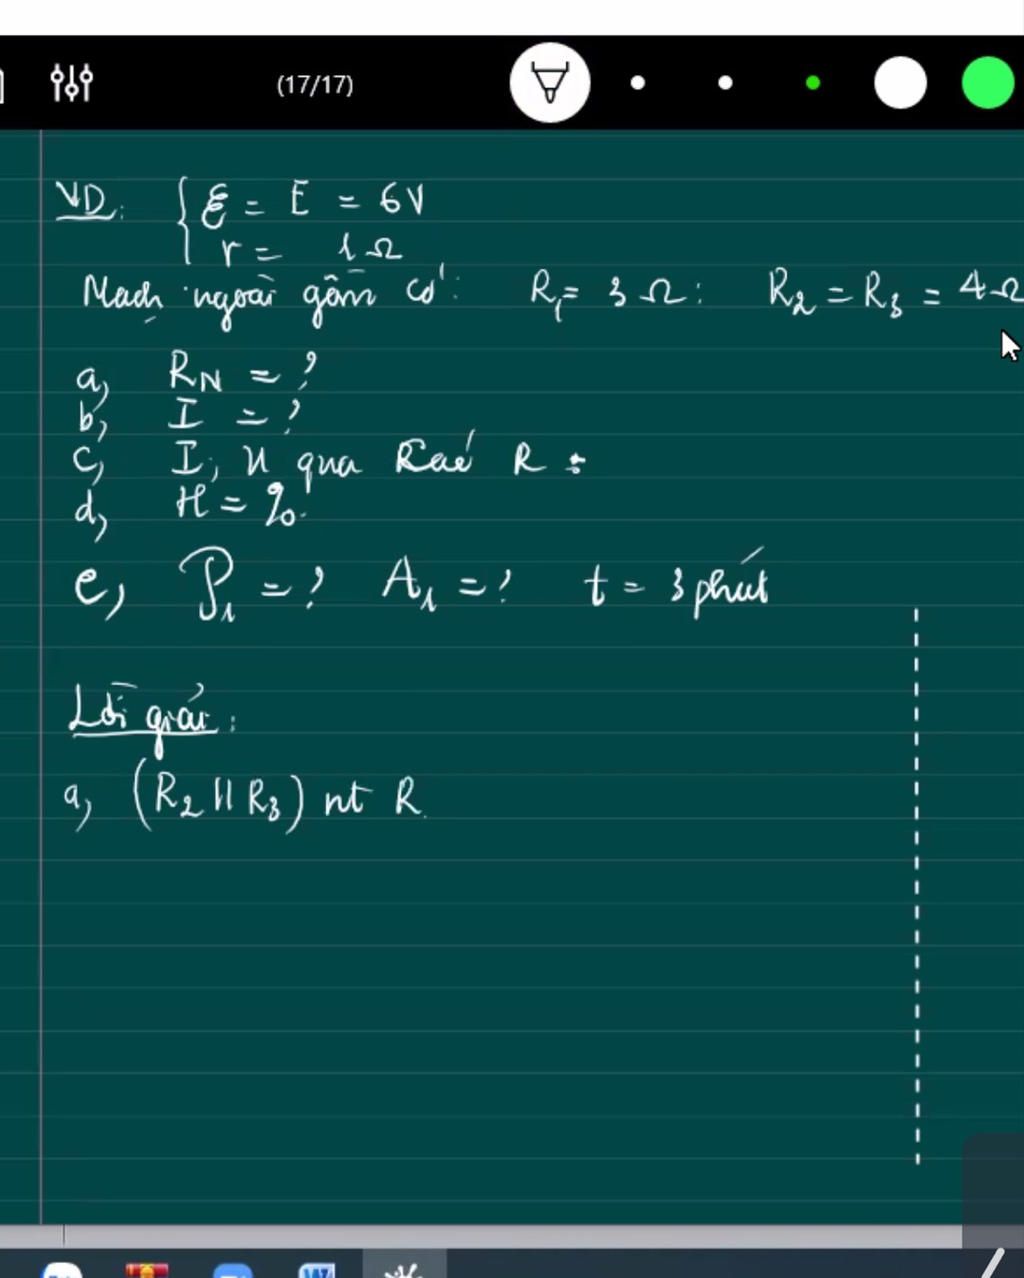 (17/17)
VD: { ℰ = E = 6V
r = 1Ω
Mạch ngoài gồm có: R₁ = 3Ω: R₂ = R₃ = 4Ω
a, R_N = ?
b, I = ?
c, I, U qua các R :
d, H = %.
e, P₁ = ? A₁ = ? t = 3 phút
Lời giải:
a, (R₂ // R₃) nt R